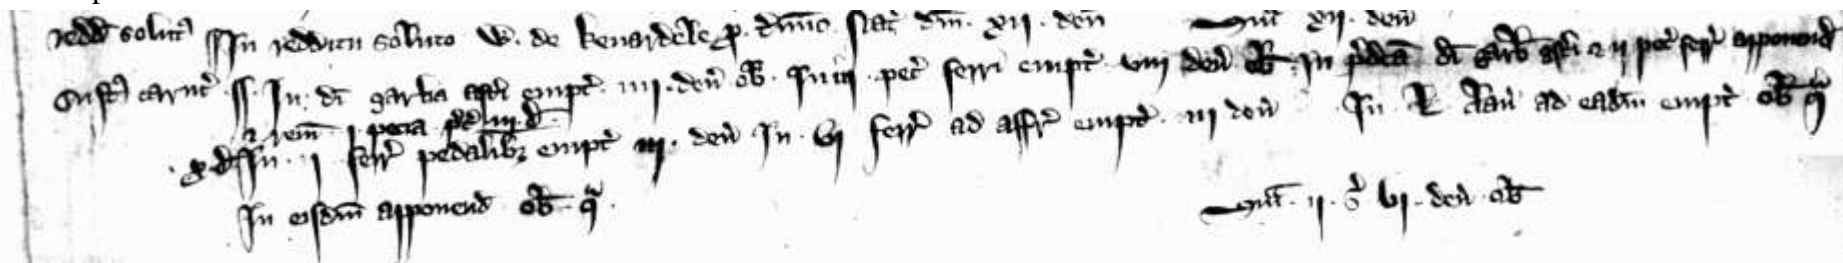 redd solut In redditu soluto W. de kenardele p. t'mino Nat' dm. xii. den Sum xii. den
Cust carut In di garba aseri empt. iiii. den ob. In iii pec ferri empt. viii den ob. In p'dcta di garb aseri et ii pec ferri apponend
et rem i pecia
x d In i ferr pedalibz empt iii. den In vi ferr ad affr empt. iii den In L clau ad eadm empt ob q
In eisdm apponend ob q. Sum ii s vi. den ob